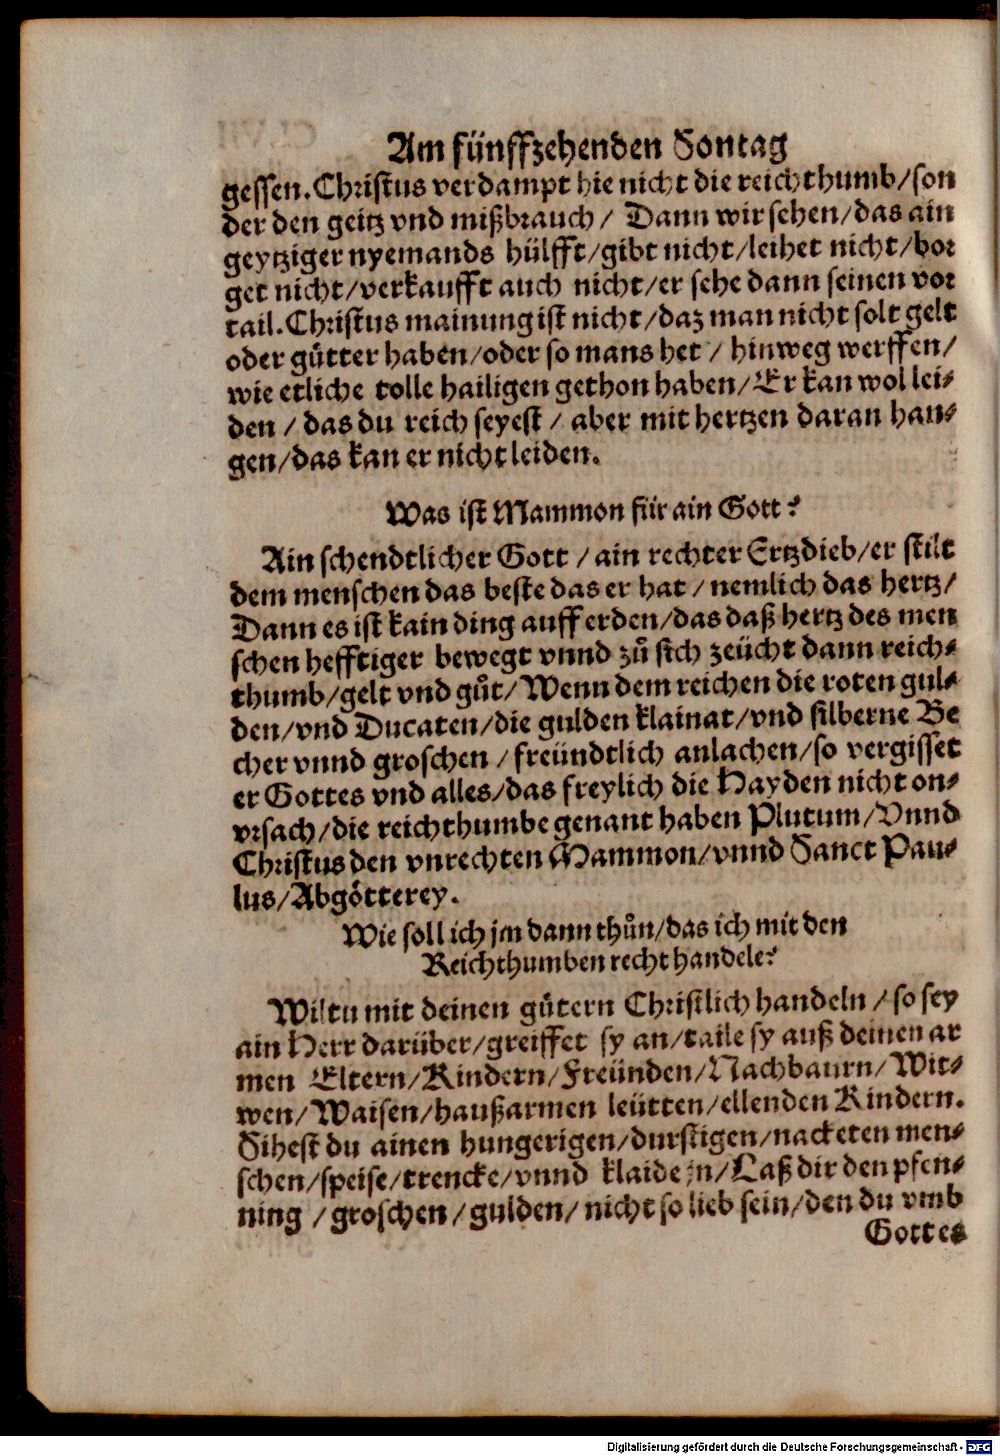 Am fünffzehenden Sontag
gessen. Christus verdampt hie nicht die reichthumb/son
der den geitz vnd mißbrauch/ Dann wir sehen/das ain
geytziger nyemands hülfft/gibt nicht/leihet nicht/bor
get nicht/verkaufft auch nicht/er sehe dann seinen vor
tail. Christus mainung ist nicht/daz man nicht solt gelt
oder guͤtter haben/oder so mans het/ hinweg werffen/
wie etliche tolle hailigen gethon haben/Er kan wol lei⸗
den/das du reich seyest/ aber mit hertzen daran han⸗
gen/das kan er nicht leiden.
Was ist Mammon für ain Gott?
Ain schendtlicher Gott/ain rechter Ertzdieb/er stilt
dem menschen das beste das er hat/nemlich das hertz/
Dann es ist kain ding auff erden/das daß hertz des men
schen hefftiger bewegt vnnd zuͦ sich zeücht dann reich⸗
thumb/gelt vnd guͦt/Wenn dem reichen die roten gul⸗
den/vnd Ducaten/die gulden klainat/vnd silberne Be
cher vnnd groschen/freündtlich anlachen/so vergisset
er Gottes vnd alles/das freylich die Hayden nicht on⸗
vrsach/die reichthumbe genant haben Plutum/Vnnd
Christus den vnrechten Mammon/vnnd Sanct Pau⸗
lus/Abgoͤtterey.
Wie soll ich jm dann thuͦn/das ich mit den
Reichthumben recht handele?
Wiltu mit deinen guͤtern Christlich handeln/so sey
ain Herr darüber/greiffet sy an/taile sy auß deinen ar
men Eltern/Kindern/Freünden/Nachbaurn/Wit⸗
wen/Waisen/haußarmen leütten/ellenden Kindern.
Sihest du ainen hungerigen/durstigen/nacketen men⸗
schen/speise/trencke/vnnd klaide jn/Laß dir den pfen⸗
ning/groschen/gulden/nicht so lieb sein/den du vmb
Gottes
Digitalisierung gefördert durch die Deutsche Forschungsgemeinschaft - DFG